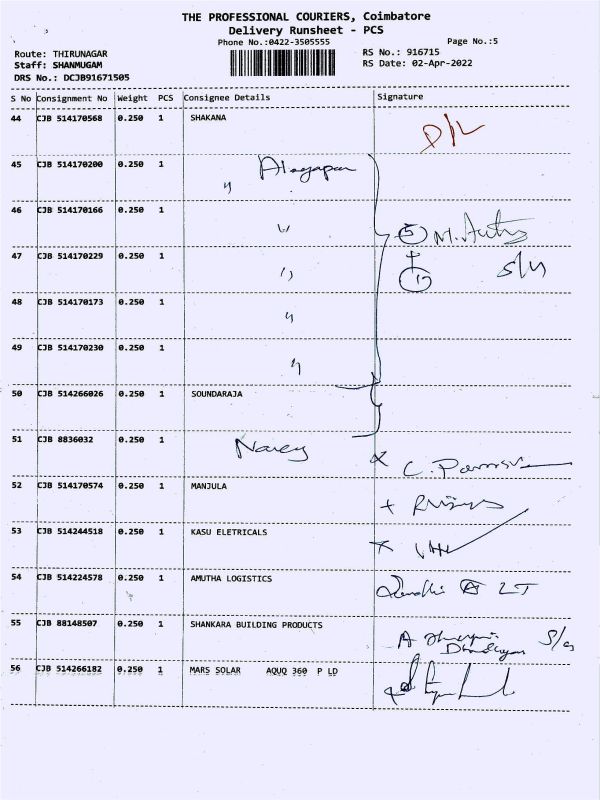 THE PROFESSIONAL COURIERS, Coimbatore
Delivery Runsheet - PCS
Phone No.:0422-3505555
Page No.:5
Route: THIRUNAGAR
RS No.: 916715
Staff: SHANMUGAM
RS Date: 02-Apr-2022
DRS No.: DCJB91671505
S No Consignment No Weight PCS Consignee Details Signature
44 CJB 514170568 0.250 1 SHAKANA
45 CJB 514170200 0.250 1
46 CJB 514170166 0.250 1
47 CJB 514170229 0.250 1
48 CJB 514170173 0.250 1
49 CJB 514170230 0.250 1
50 CJB 514266026 0.250 1 SOUNDARAJA
51 CJB 8836032 0.250 1
52 CJB 514170574 0.250 1 MANJULA
53 CJB 514244518 0.250 1 KASU ELETRICALS
54 CJB 514224578 0.250 1 AMUTHA LOGISTICS
55 CJB 88148507 0.250 1 SHANKARA BUILDING PRODUCTS
56 CJB 514266182 0.250 1 MARS SOLAR AQUQ 360 P LD